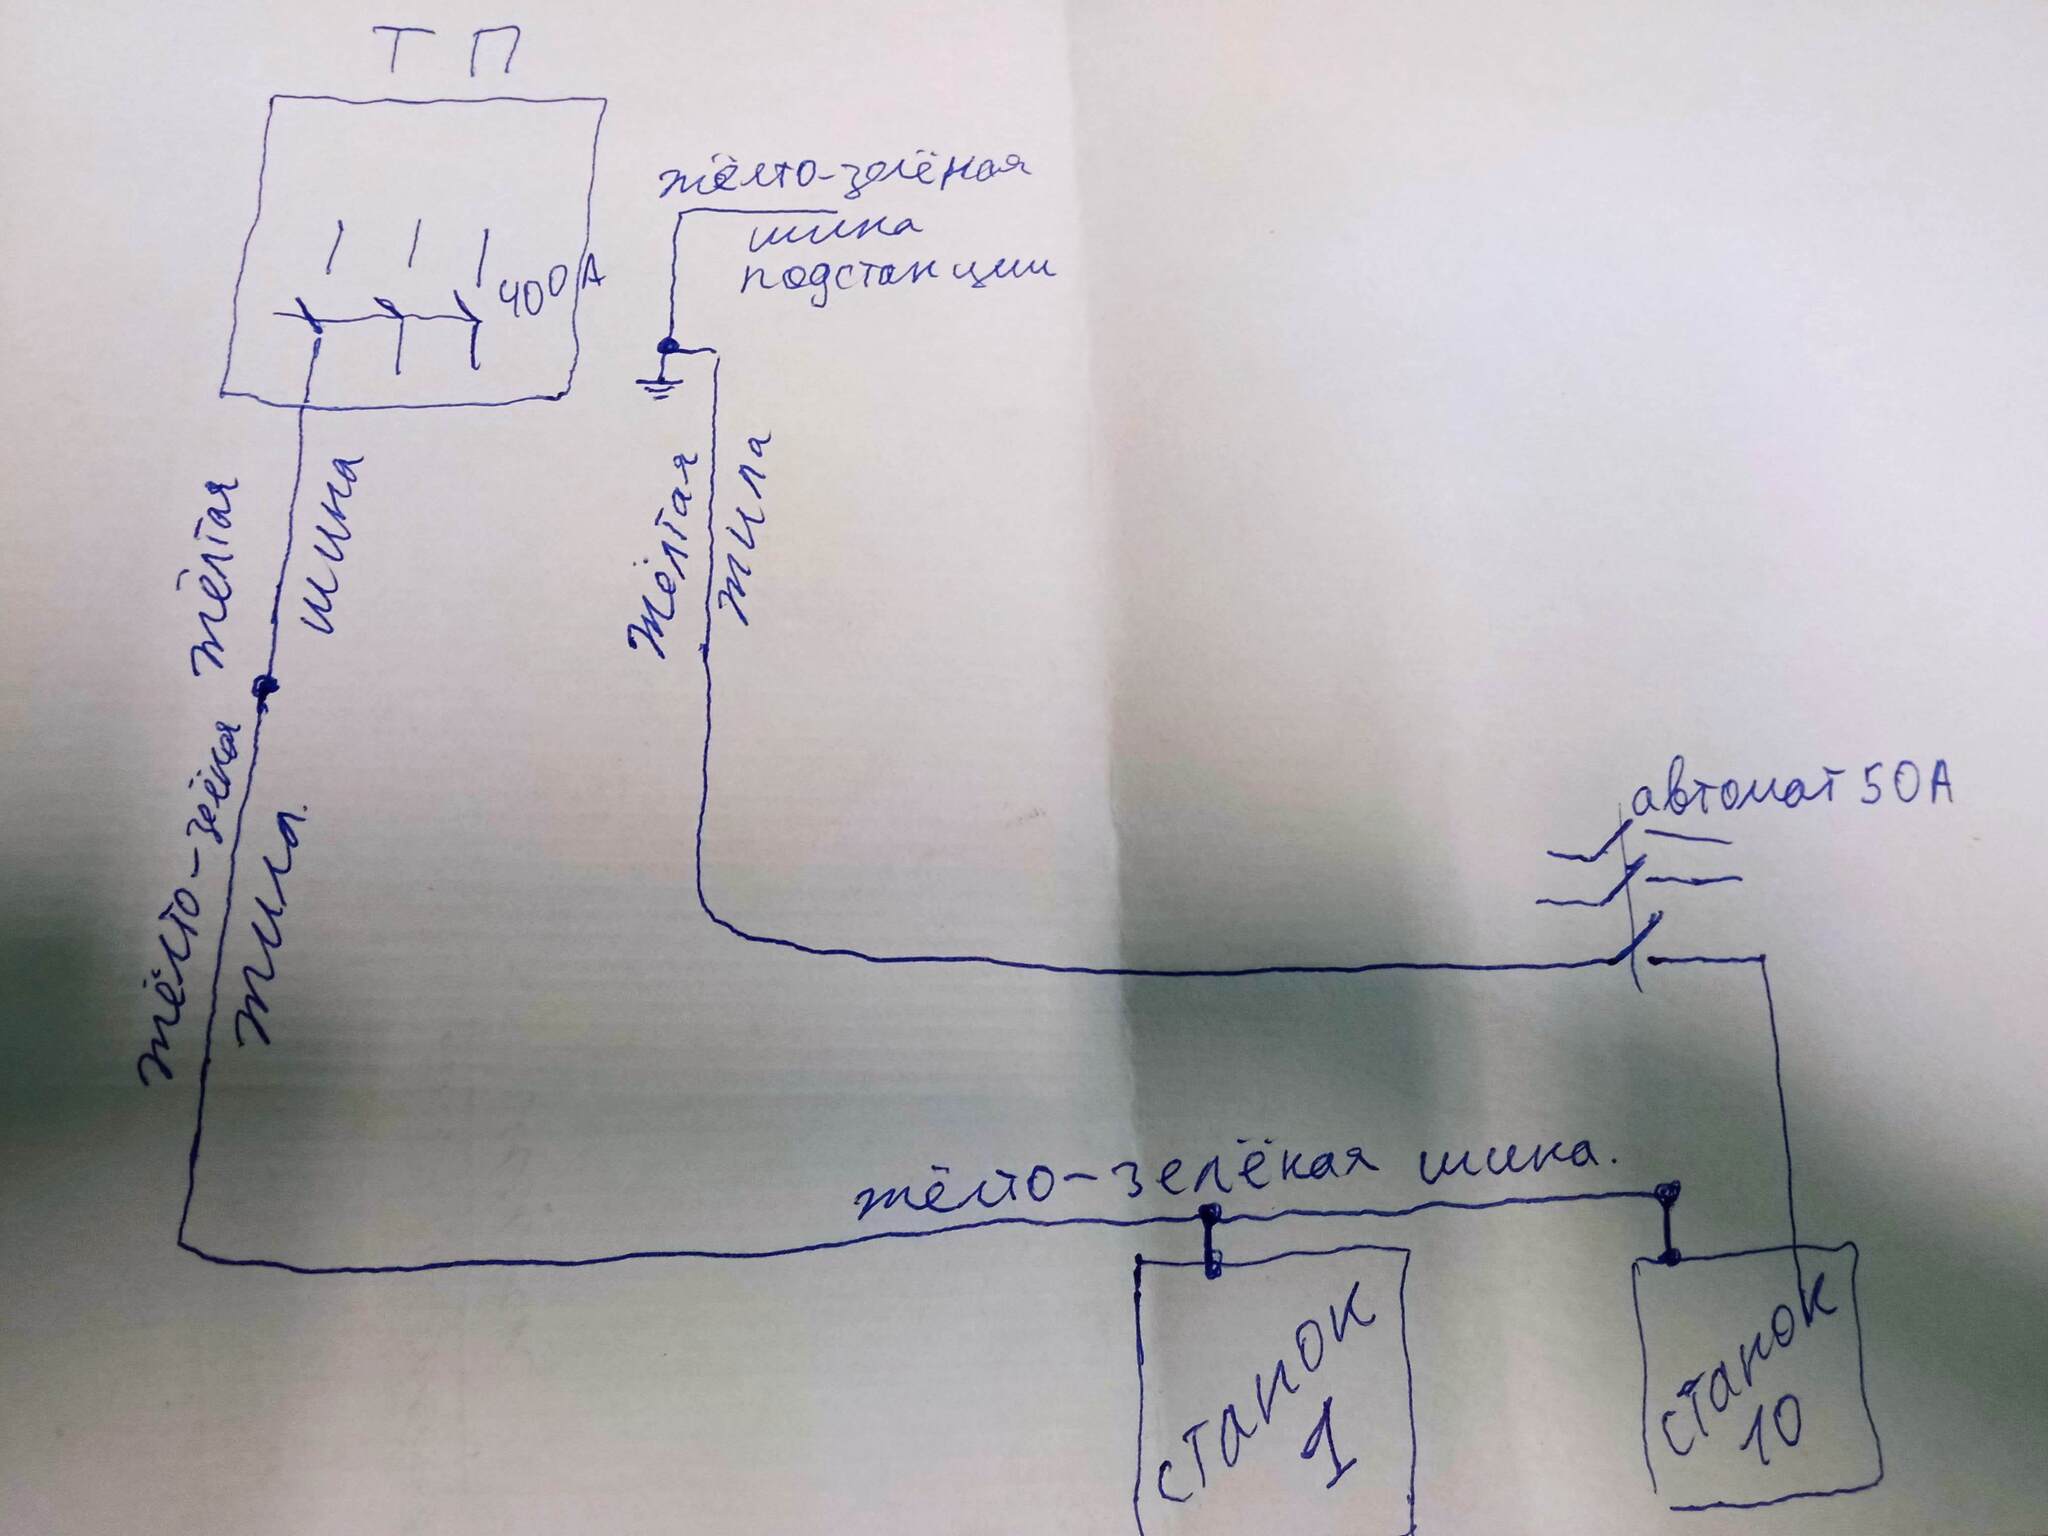 ТП
жёлто-зелёная
шина
подстанции
400А
жёлтая
шина
жёлтая
жила
жёлто-зелёная
жила.
автомат 50А
жёлто-зелёная шина.
станок
1
станок
10